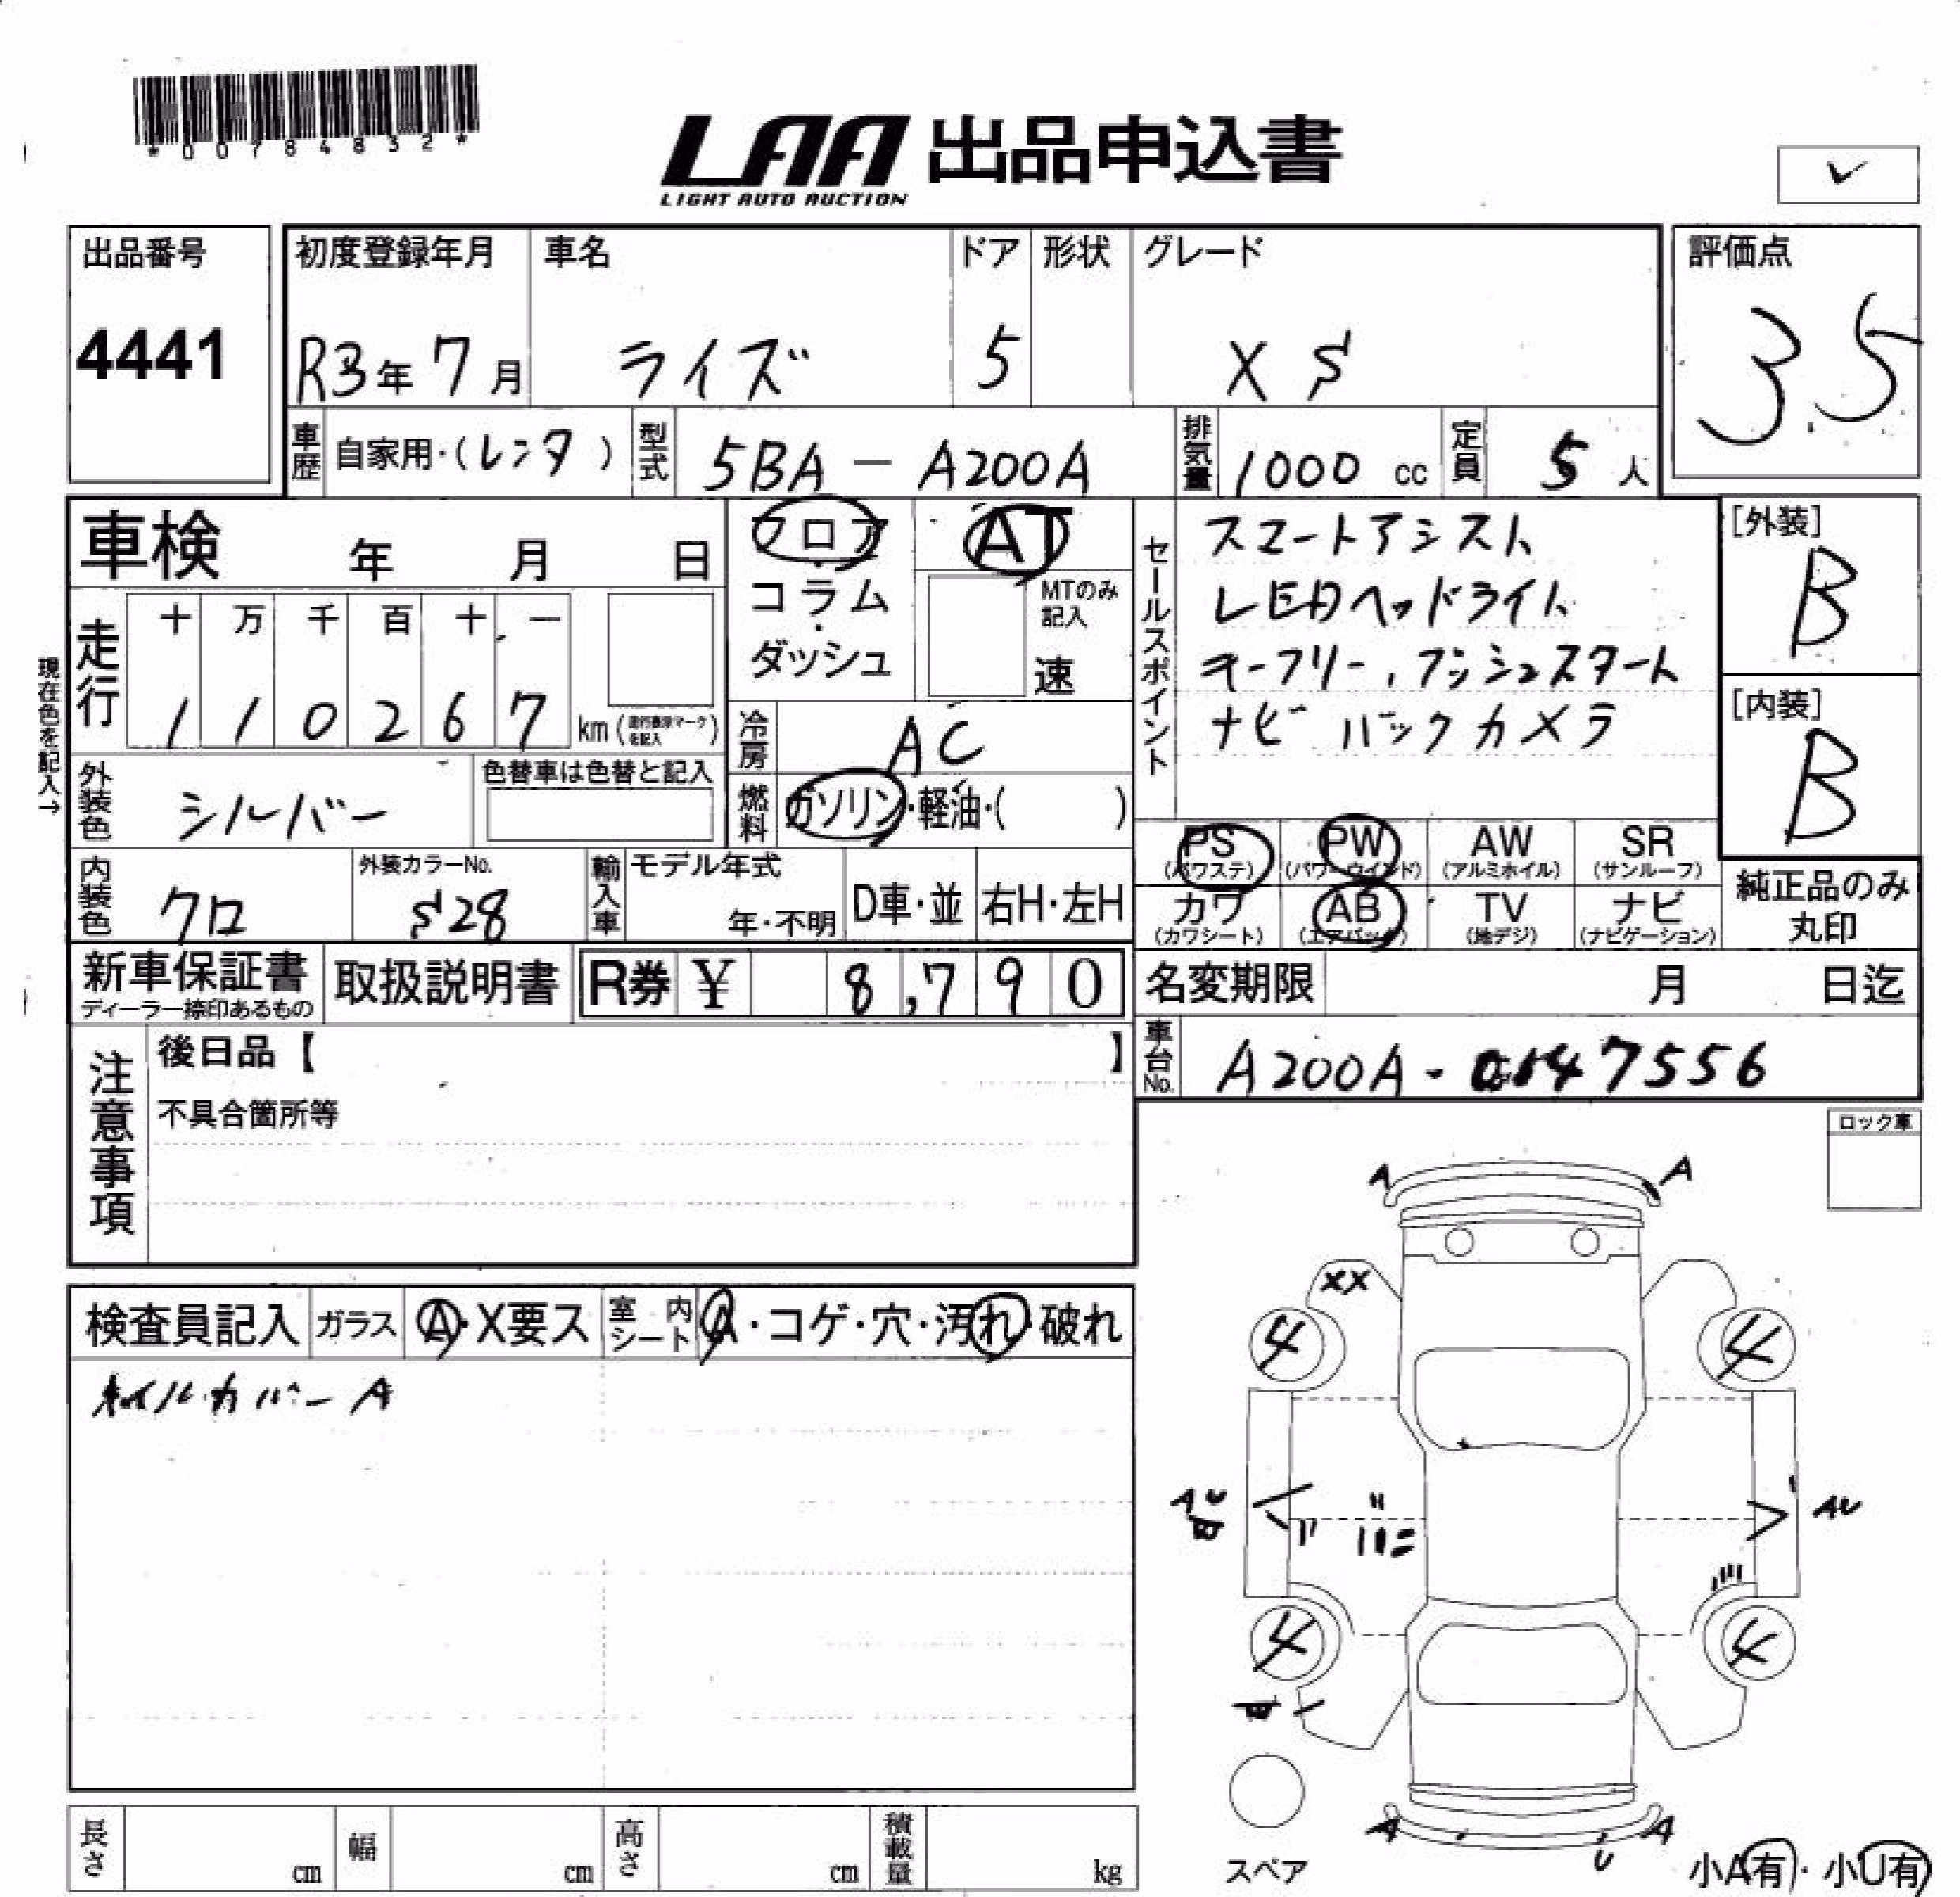 *00784832*
LAA 出品申込書
LIGHT AUTO AUCTION
✓
出品番号
4441
初度登録年月
R3年 7月
車名
ライズ
ドア
5
形状
グレード
XS
評価点
3.5
車歴 自家用・(レンタ)
型式 5BA - A200A
排気量 1000 cc
定員 5 人
車検 年 月 日
フロア・コラム・ダッシュ
AT
MTのみ記入
速
現在色を記入→
走行
十 万 千 百 十 一
1 1 0 2 6 7 km (走行表示マークを記入)
冷房 AC
燃料 ガソリン・軽油・( )
外装色 シルバー
色替車は色替と記入
内装色 クロ
外装カラーNo.
S28
輸入車 モデル年式
年・不明
D車・並
右H・左H
セールスポイント
スマートアシスト
LEDヘッドライト
キーフリー、プッシュスタート
ナビ バックカメラ
[外装]
B
[内装]
B
PS (パワステ)
PW (パワーウインド)
AW (アルミホイル)
SR (サンルーフ)
カワ (カワシート)
AB (エアバック)
TV (地デジ)
ナビ (ナビゲーション)
純正品のみ丸印
新車保証書
ディーラー捺印あるもの
取扱説明書
R券 ¥ 8,790
名変期限 月 日迄
車台No. A200A-0147556
注意事項
後日品【 】
不具合箇所等
ロック車
検査員記入
ガラス Ⓐ・X要ス
室内シート A・コゲ・穴・汚れ・破れ
ホイルカバーA
A A
XX
4 4
AU AU
4 4
A A
U
スペア
小A有・小U有
長さ cm
幅 cm
高さ cm
積載量 kg